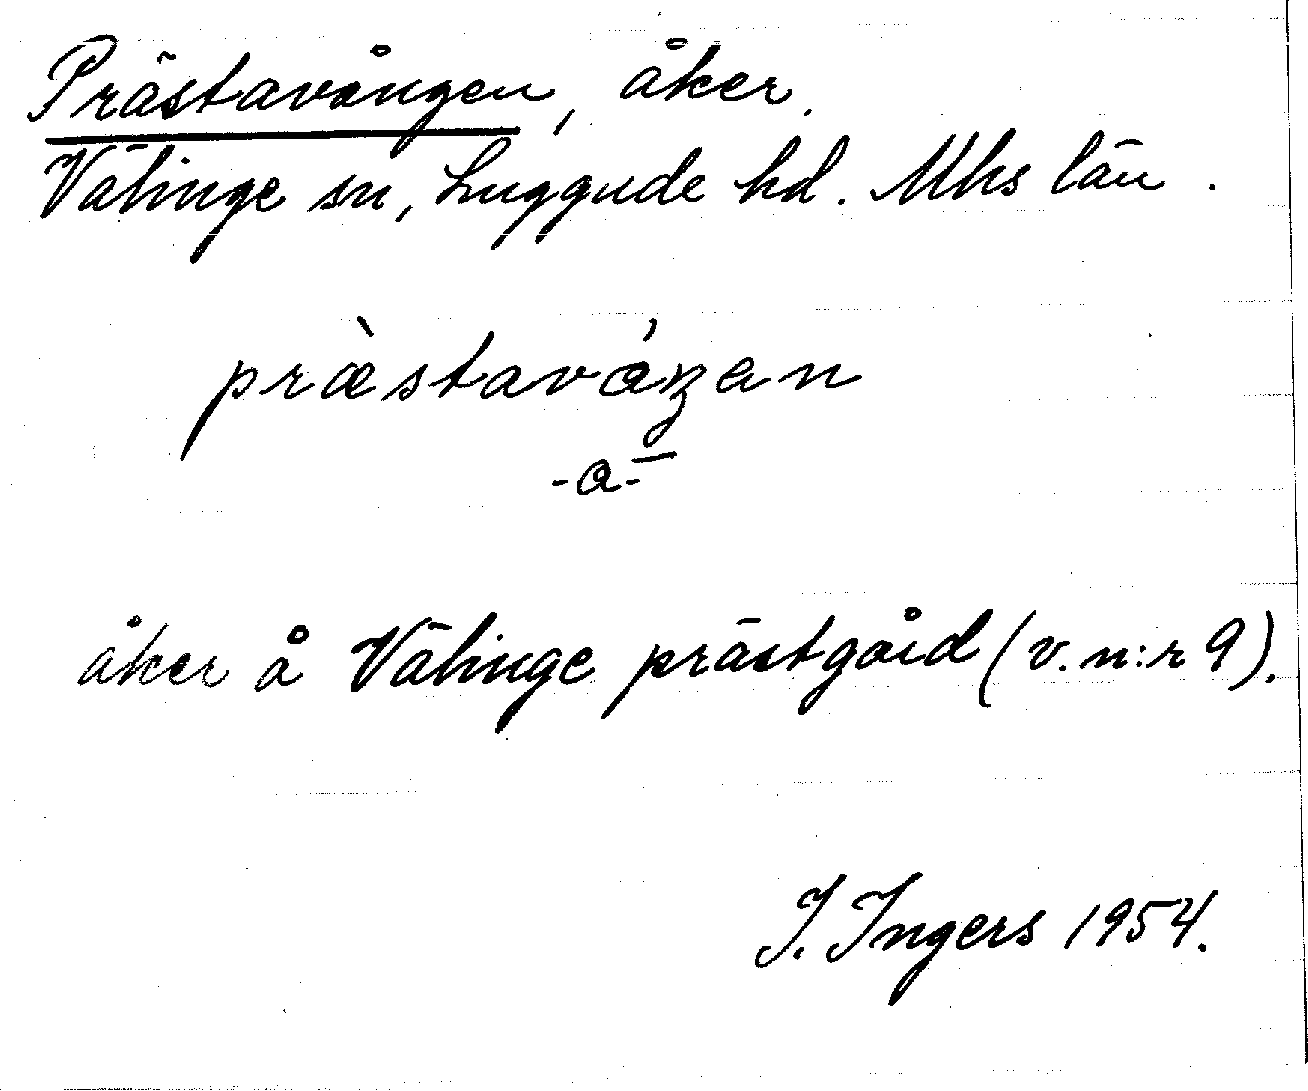 Prästavången, åker.
Välinge sn, Luggude hd. Mhs län.
præ̀staváŋen
-a-
åker å Välinge prästgård (v. n:r 9).
I. Ingers 1954.